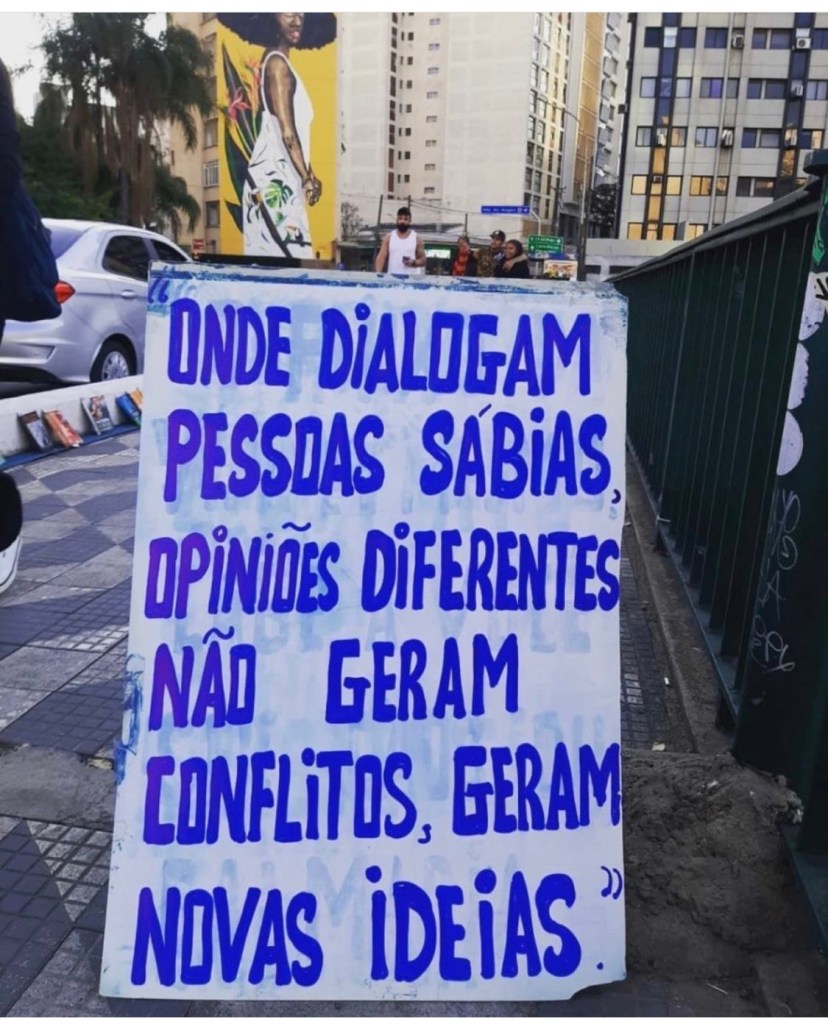 “ONDE DiALOGAM
PESSOAS SÁBiAS,
OPiNiÕES DiFERENTES
NÃO GERAM
CONFLiTOS, GERAM
NOVAS iDEiAS.”